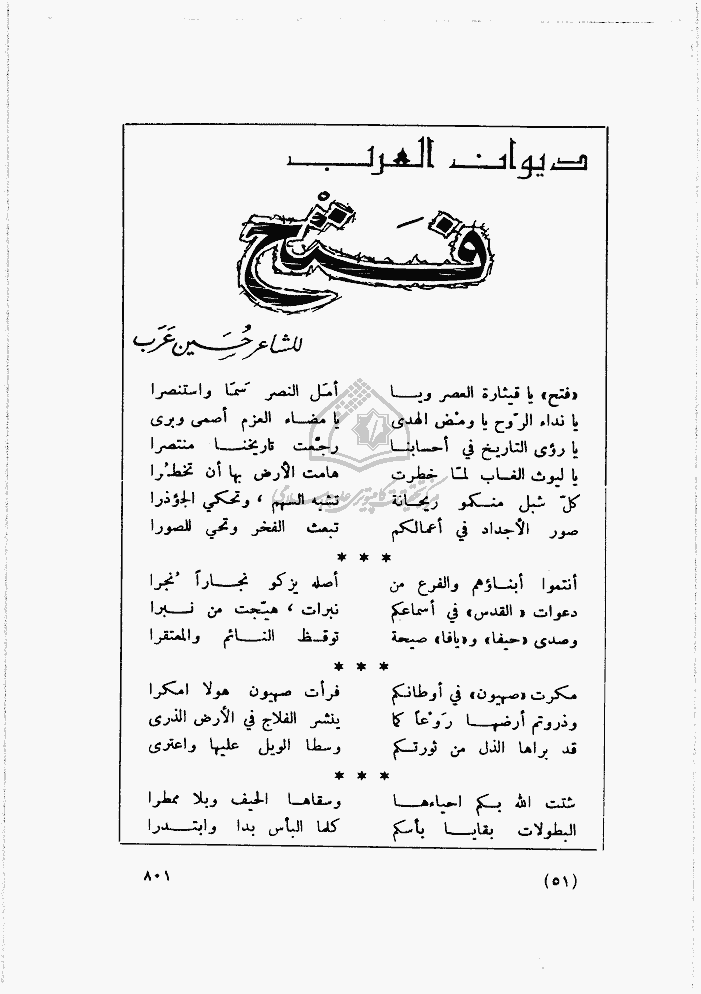 ديوان العرب
فَتْح
للشاعر حُسَين عَرَب
«فتح» يا قيثارة العصر ويـا أمَل النصر سَمّا واستنصرا
يا نداء الرّوح يا ومْض الهدى يا مضاء العزم أصمى وبرى
يا رؤى التاريخ في أحسابنا رجّعت تاريخنا منتصرا
يا ليوث الغاب لمّا خطرت هامت الأرض بها أن تخطُرا
كلّ شبل منكمو ريحانة تشبه السهم ، وتحكي الجؤذرا
صور الأجداد في أعمالكم تبعث الفخر وتحي للصورا
* * *
أنتموا أبناؤهم والفرع من أصله يزكو نجاراً نُجرا
دعوات « القدس» في أسماعكم نبرات ، هيّجت من نبرا
وصدى «حيفا» و«يافا» صيحة توقظ النائم والمعتقرا
* * *
مكرت «صهيون» في أوطانكم فرأت صهيون هولا امكرا
وذروتم أرضها رَوْعاً كما ينشر الفلاج في الأرض الذرى
قد براها الذل من ثورتكم وسطا الويل عليها واعترى
* * *
شتت الله بكم احياءها وسقاها الحيف وبلا ممطرا
البطولات بقايا بأسكم كلما البأس بدا وابتدرا
(٥١)
٨٠١